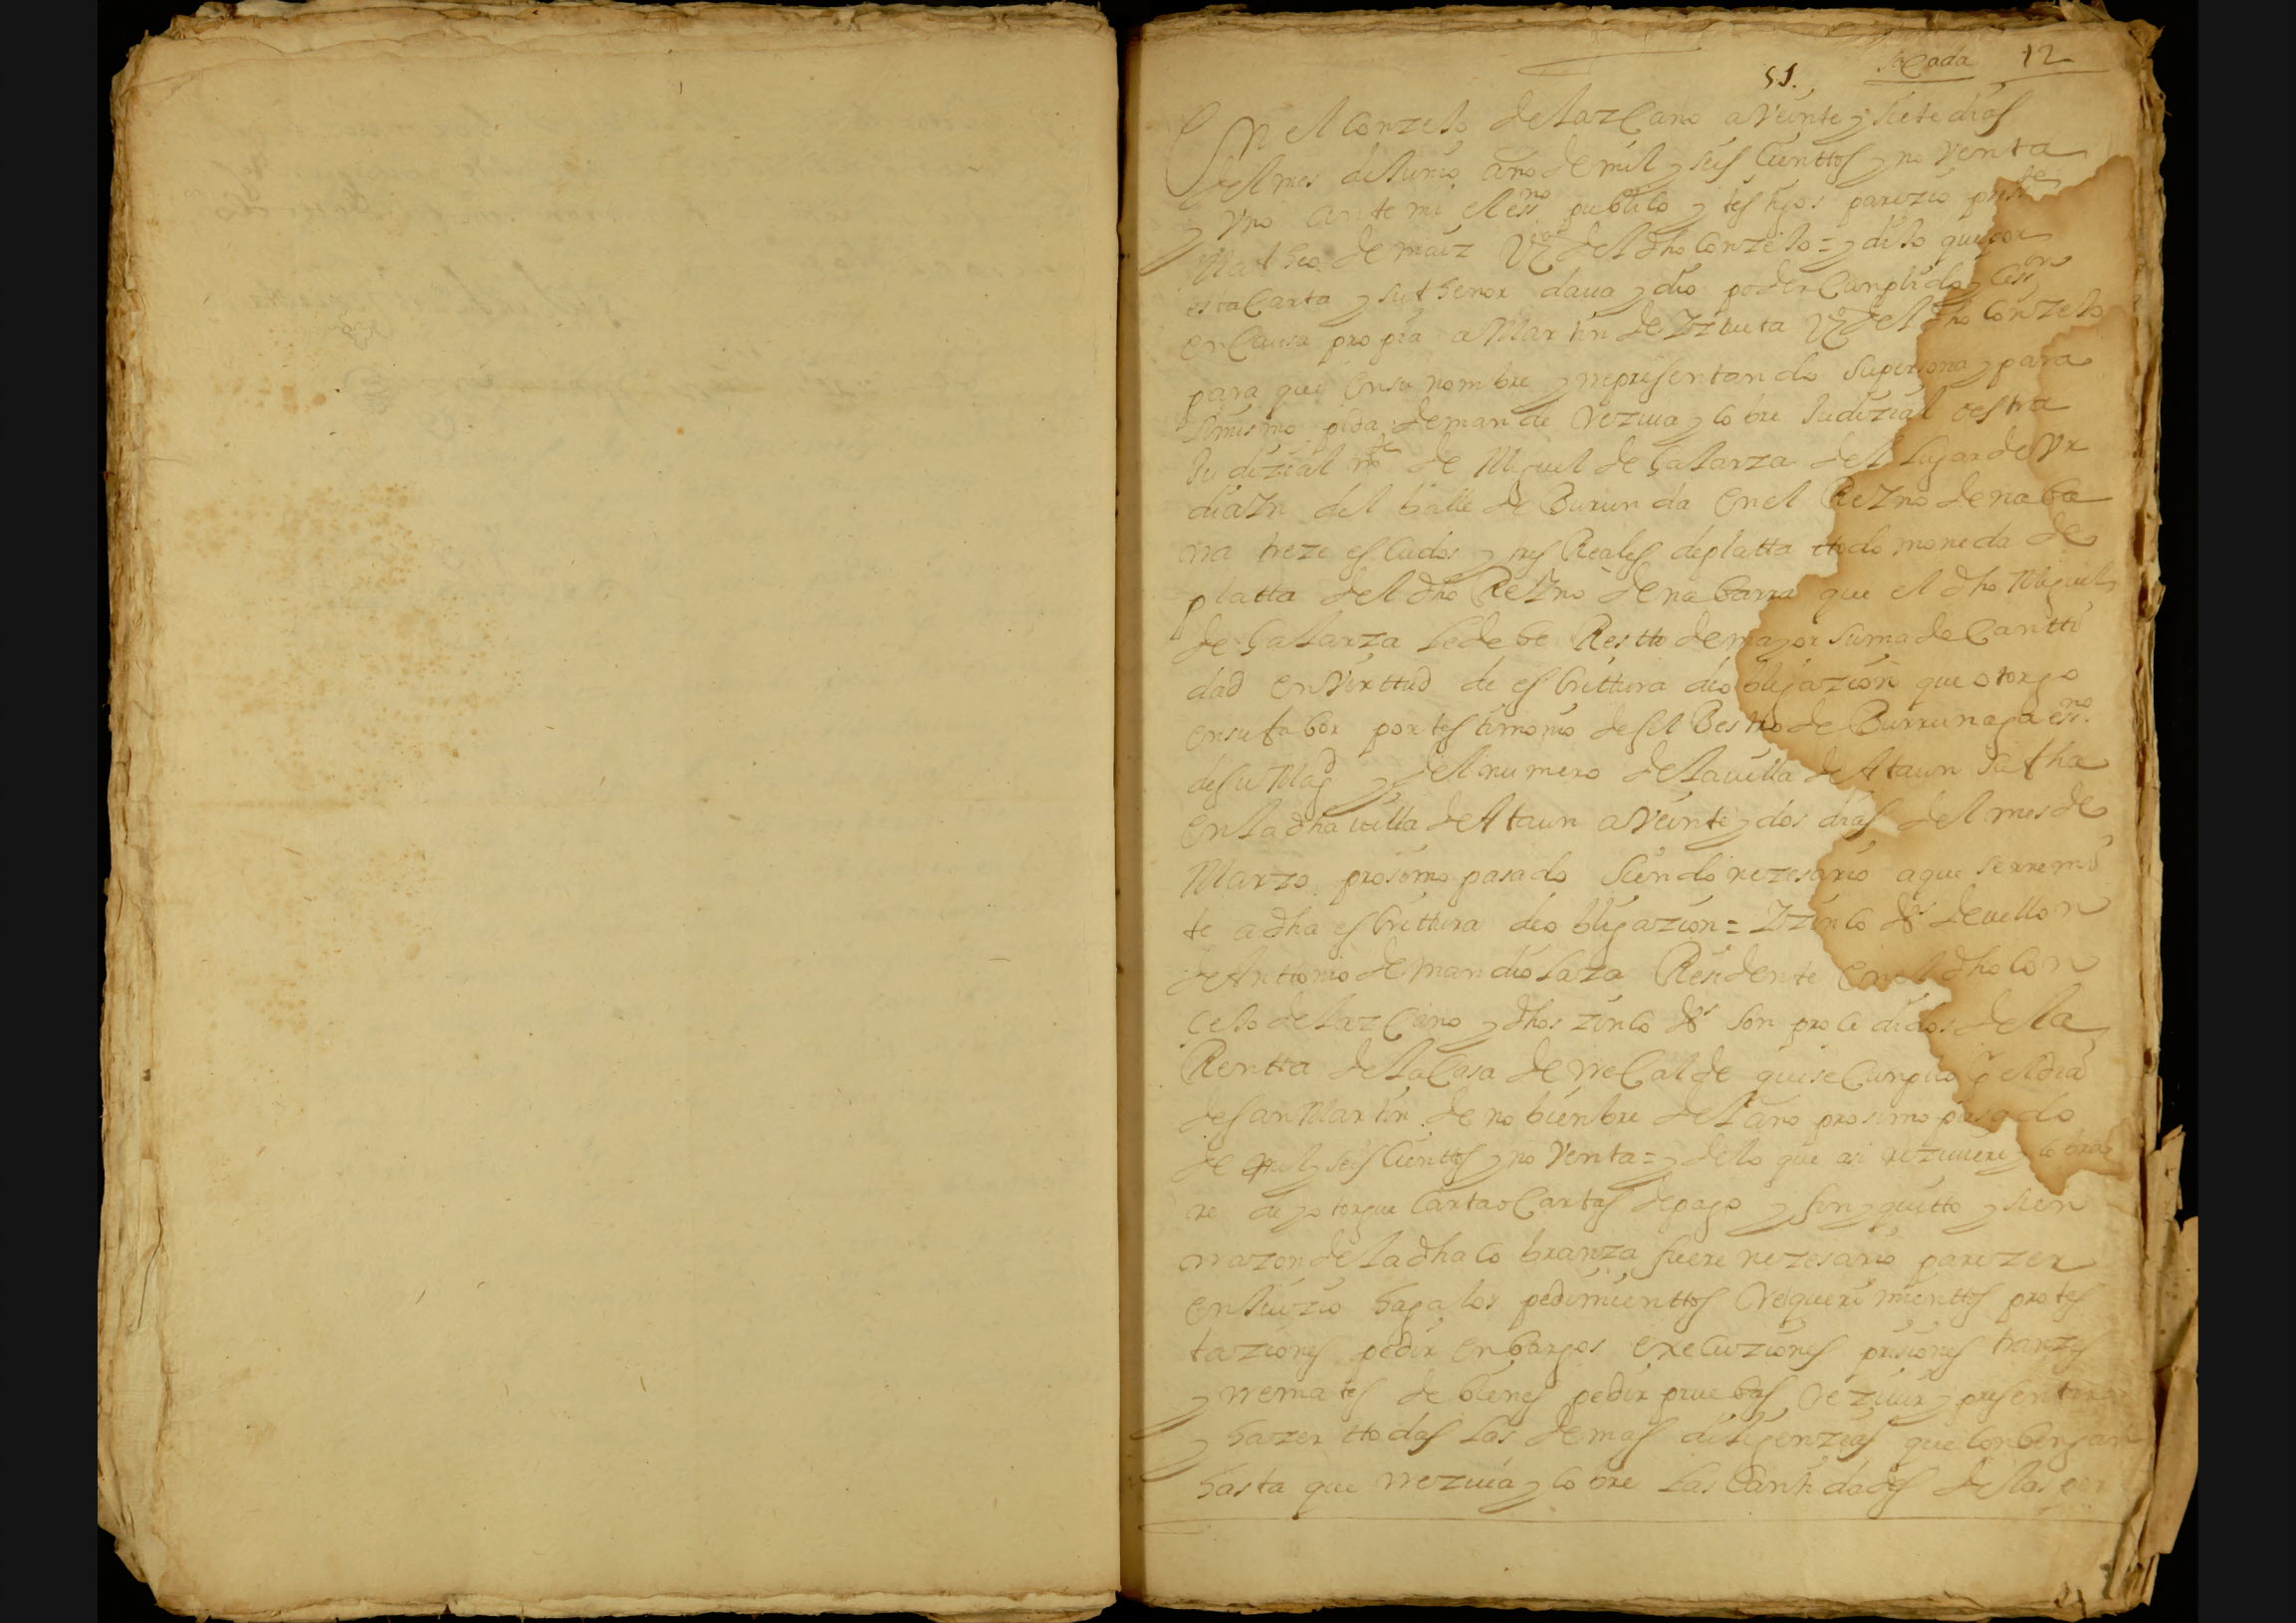 Sacada 12
51.
En el Conzejo de Lazcano a Veinte y siete dias
del mes de Junio año de mil y seis Cienttos y no Venta
y Vno ante mi el essno publico y testigos parezio preste
Matheo de maiz Vzº del dho Conzejo = y dijo que por
esta Carta y su thenor daua y dio poder Cunplido y Cession
en Causa propia a Martin de Yztueta Vzº del dho Conzejo
para que en su nombre y rrepresentando su persona y para
simismo pida demande rreziua y cobre Judizial o estra
Judizial mte de Miguel de Galarza del lugar de Vr
diayn del balle de Burunda en el Reyno de naba
rra treze escudos y tres Reales de platta ttodo moneda de
platta del dho Reyno de nabarra que el dho Miguel
de Galarza le debe Restto de mayor suma de Cantti
dad en Virttud de escrittura de obligazion que otorgo
en su fabor por testimonio de Silbestro de Burrunaga essno
de su Magd y del numero de la villa de Ataun su fha
en la dha villa de Ataun a Veinte y dos dias del mes de
Marzo prosimo pasado siendo nezesario a que se rremi
te a dha escrittura de obligazion = Y zinco ds de vellon
de Anttonio de mandiolaza Residente en el dho Con
cejo de Lazcano y dhos zinco ds son procedidos de la
Rentta de la Casa de rrecalde que se Cunplio el dia
de San Martin de nobienbre del año prosimo pasado
de mil y seis Cienttos y no Venta = y de lo que asi rreziuiere y cobra
re de y otorgue Carta o Cartas de pago y fin y quitto y si en
rrazon de la dha cobranza fuere nezesario parezer
en Juizio haga los pedimienttos rrequerimienttos protes
taziones pedir enbargos execuziones prisiones tranzes
y rremates de bienes pedir pruebas rreziuir y presentar
y hazer ttodas las demas diligenzias que conbengan
hasta que rreziua y cobre las Cantidades de las